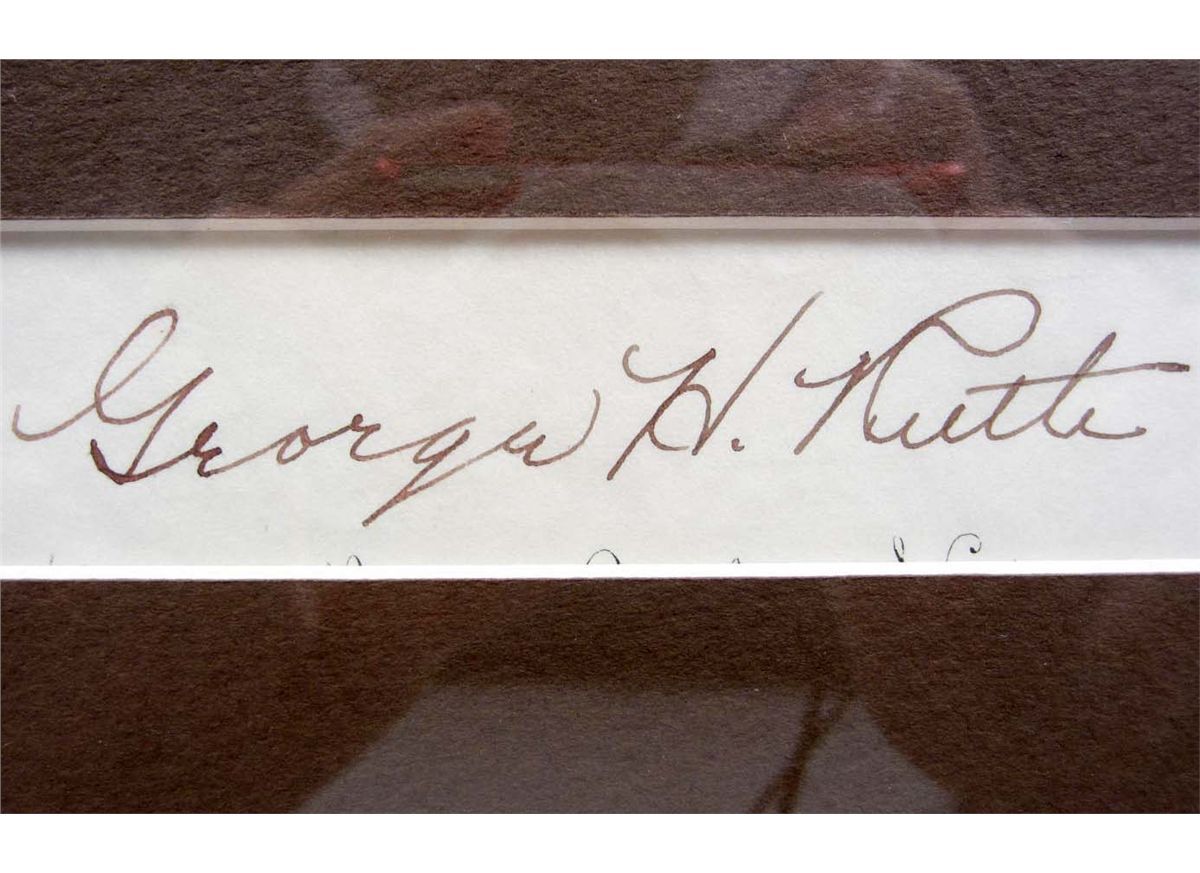 George H. Ruth